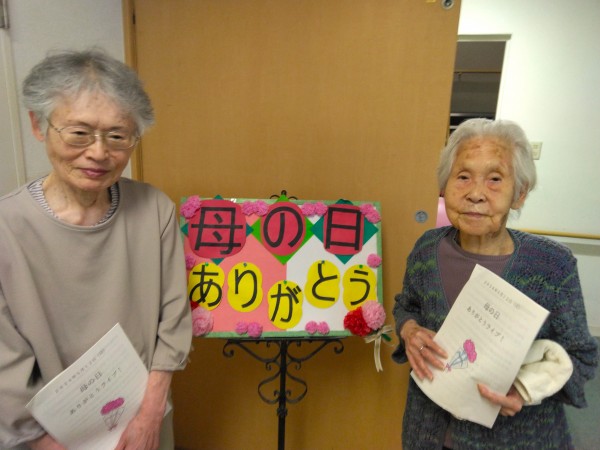 母の日
ありがとう
母の日
ありがとうライブ!
母の日
ありがとうライブ!